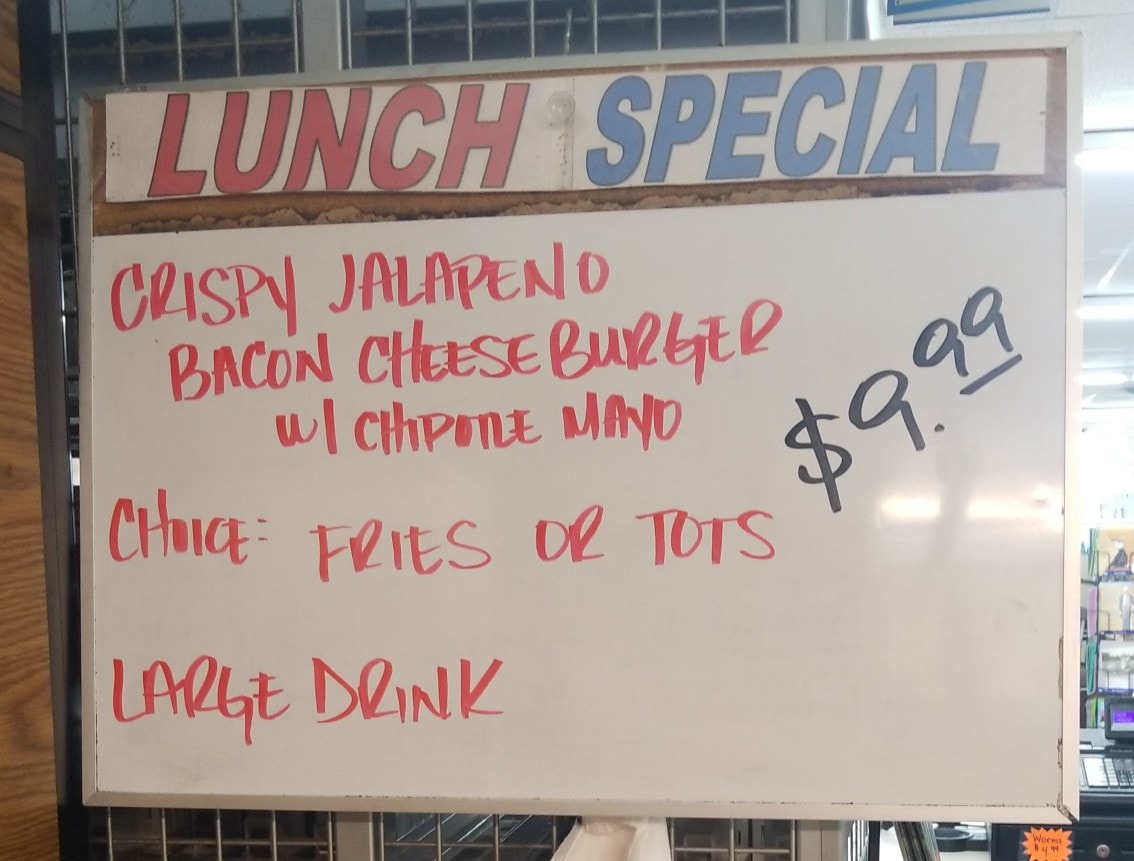 LUNCH SPECIAL
CRISPY JALAPENO
BACON CHEESEBURGER
W/ CHIPOTLE MAYO
$9.99
CHOICE: FRIES OR TOTS
LARGE DRINK
Worms
$4.99